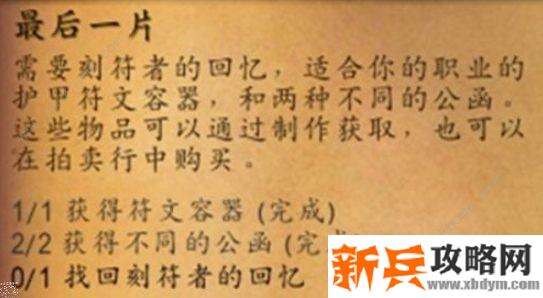 最后一片
需要刻符者的回忆，适合你的职业的
护甲符文容器，和两种不同的公函。
这些物品可以通过制作获取，也可以
在拍卖行中购买。
1/1 获得符文容器 (完成)
2/2 获得不同的公函 (完成)
0/1 找回刻符者的回忆
新兵攻略网
www.xbdym.com